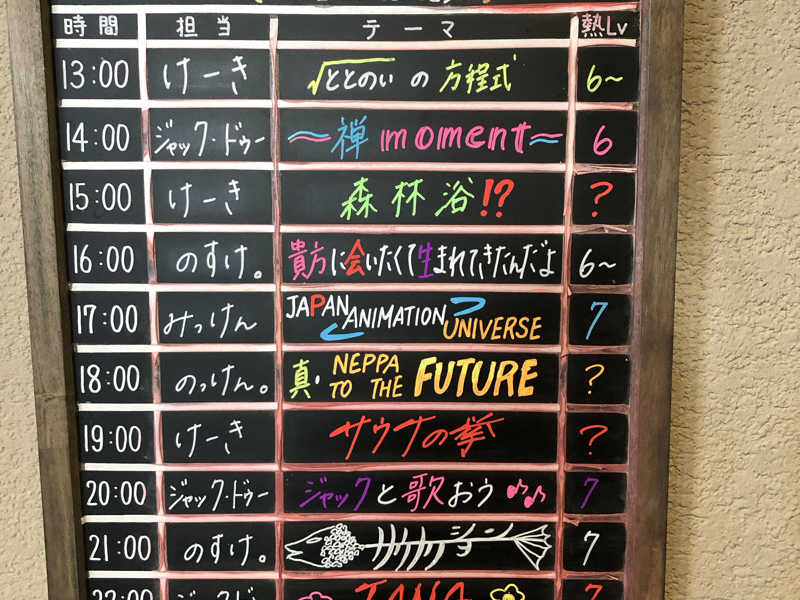 時間 担当 テーマ 熱Lv
13:00 けーき √ととのい の 方程式 6~
14:00 ジャック・ドゥー ~禅 moment~ 6
15:00 けーき 森林浴!? ?
16:00 のすけ。 貴方に会いたくて生まれてきたんだよ 6~
17:00 みっけん JAPAN ANIMATION UNIVERSE 7
18:00 のっけん。 真・NEPPA TO THE FUTURE ?
19:00 けーき サウナの拳 ?
20:00 ジャック・ドゥー ジャックと歌おう♪♪ 7
21:00 のすけ。 7
22:00